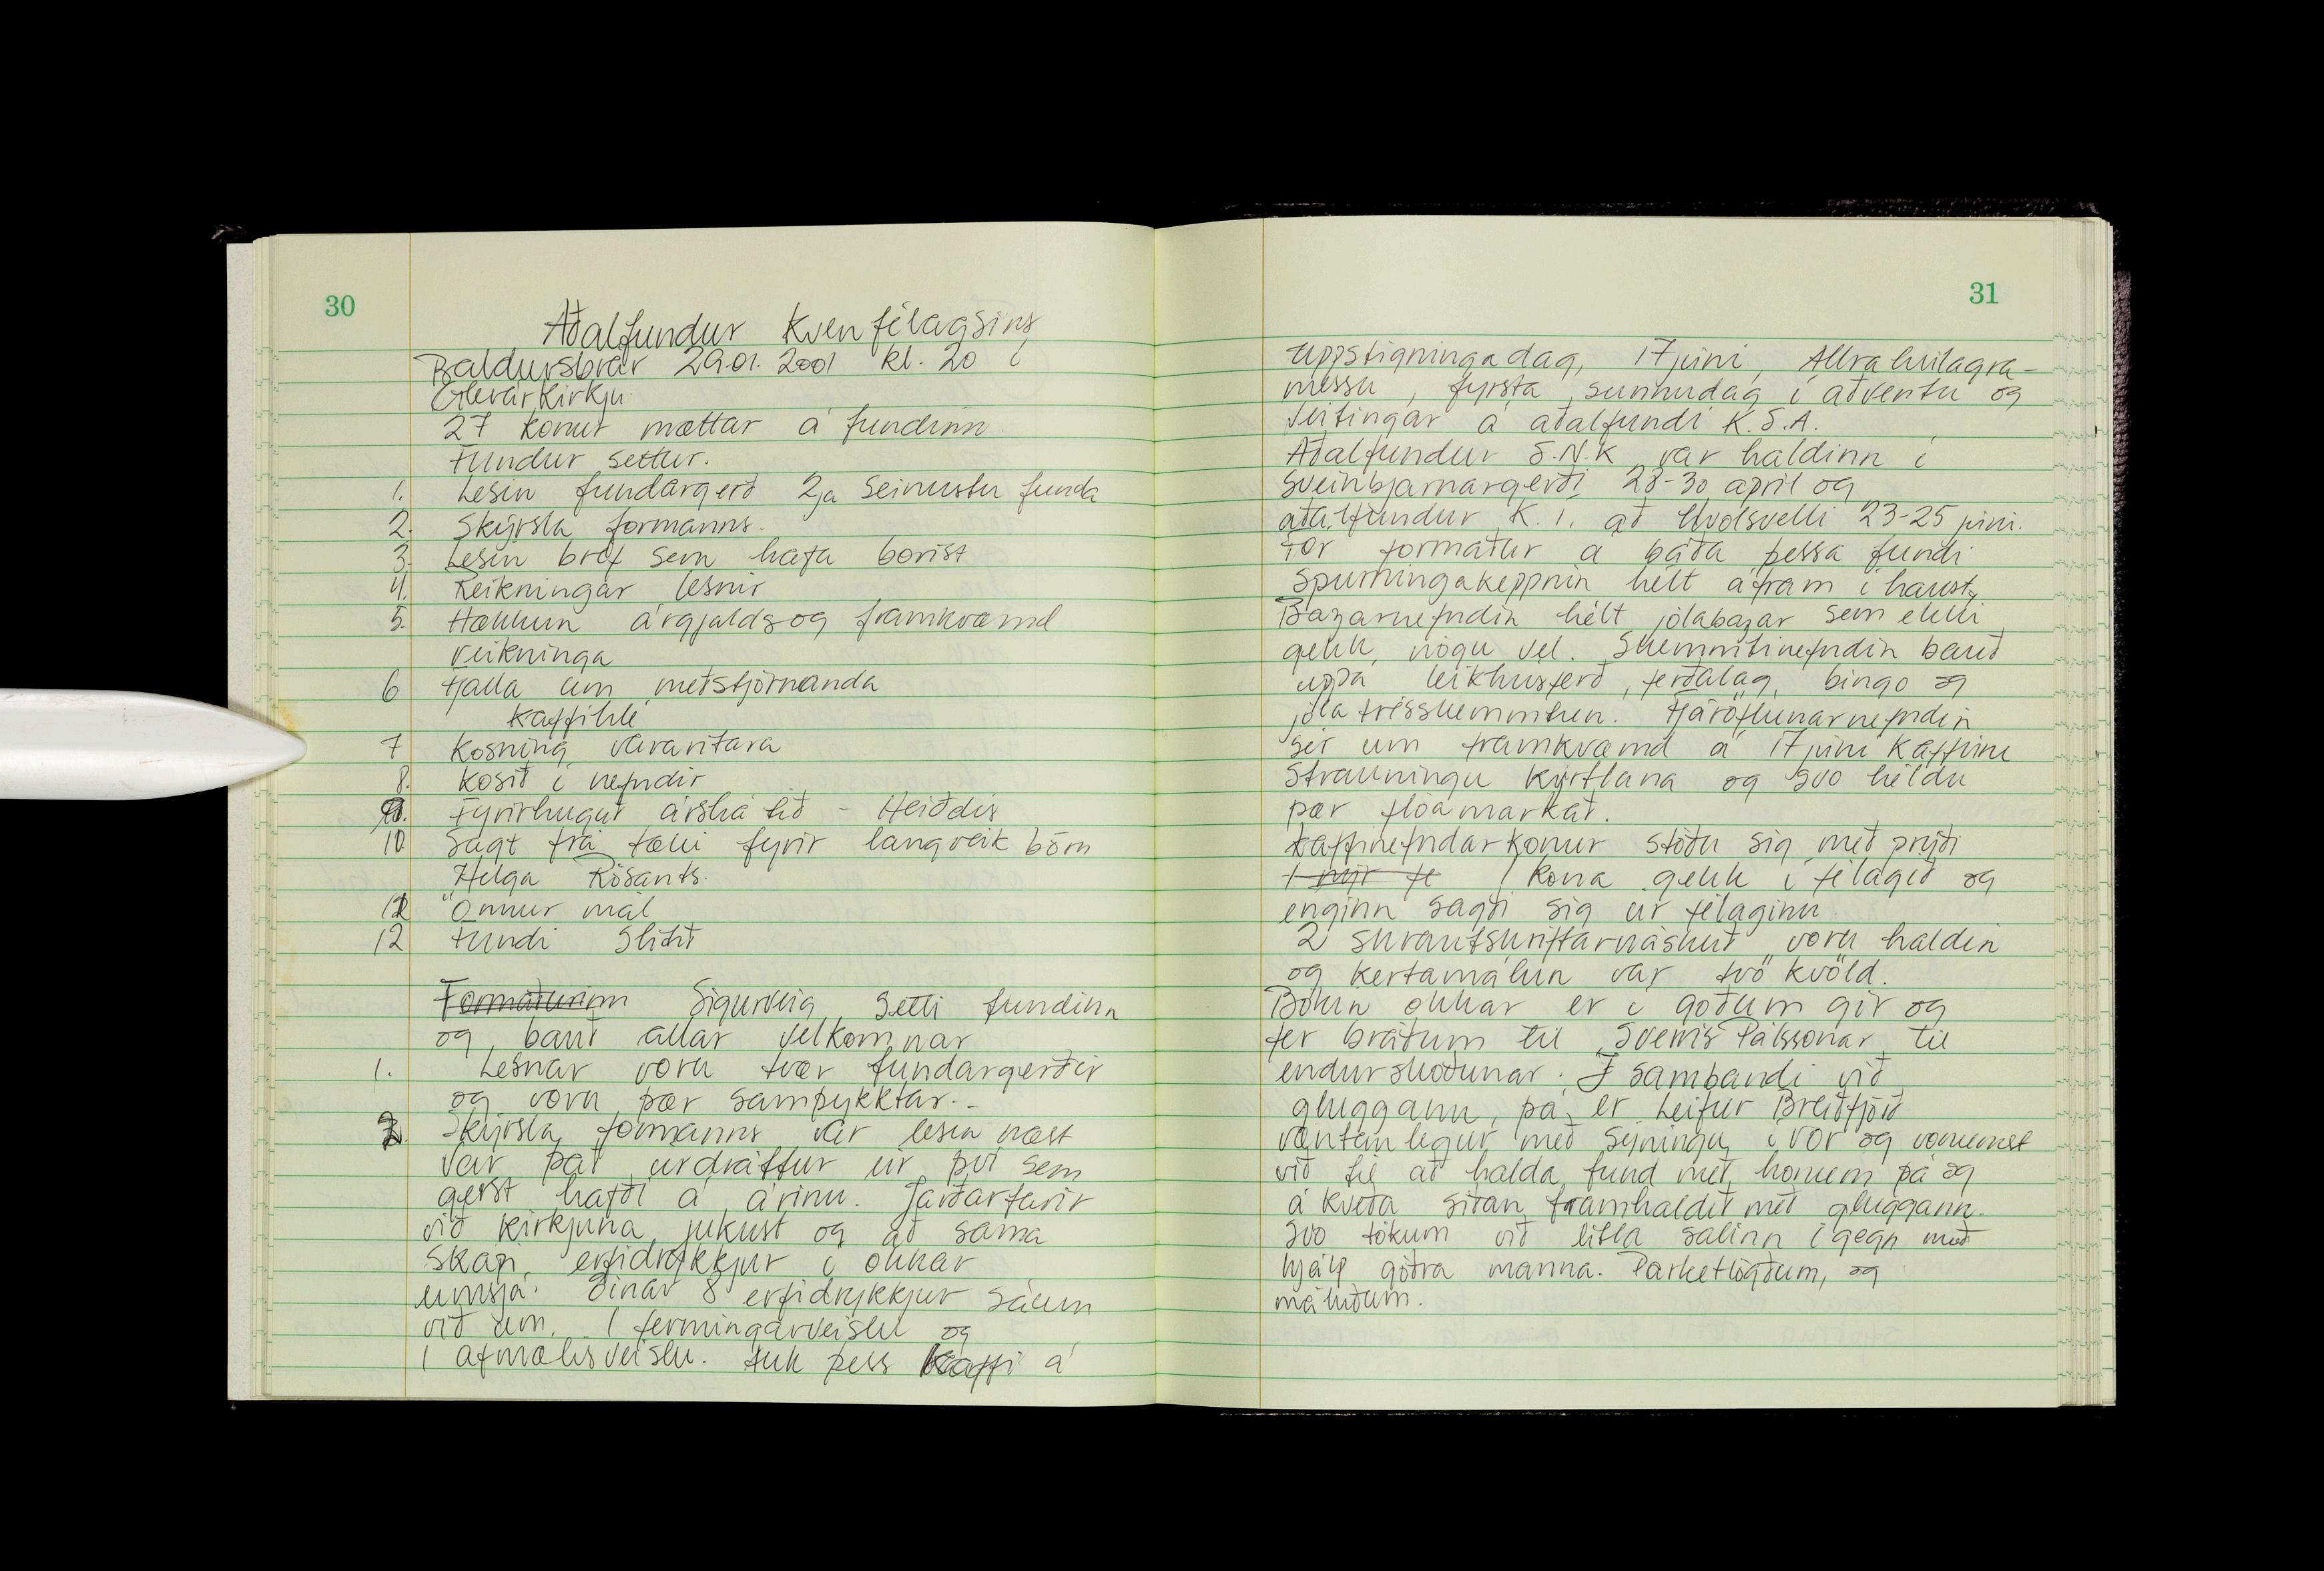 30
Aðalfundur Kvenfélagsins
Baldursbrár 29.01.2001 kl. 20 í
Glerárkirkju.
27 konur mættar á fundinn.
Fundur settur.
1. Lesin fundargerð 2ja seinustu funda
2. Skýrsla formanns.
3. Lesin bréf sem hafa borist
4. Reikningar lesnir
5. Hækkun árgjalds og framkvæmd
reikninga
6 Fjalla um meðstjórnanda
Kaffihlé
7 Kosning vararitara
8. Kosið í nefndir
9. Fyrirhuguð árshátíð - Heiðdís
10 Sagt frá tæki fyrir langveik börn
Helga Rósants.
11 Önnur mál
12 Fundi slitið
Formaðurinn Sigurveig setti fundinn
og bauð allar velkomnar
1. Lesnar voru tvær fundargerðir
og voru þær samþykktar.-
2. Skýrsla formanns var lesin næst
var það úrdráttur úr því sem
gerst hafði á árinu. Jarðarfarir
við kirkjuna jukust og að sama
skapi erfidrykkjur í okkar
umsjá. Einar 8 erfidrykkjur sáum
við um. 1 fermingarveislu og
1 afmælisveislu. Auk þess kaffi á
31
uppstigningadag, 17 júní, Allraheilagra-
messu, fyrsta sunnudag í aðventu og
veitingar á aðalfundi K.S.A.
Aðalfundur S.N.K var haldinn í
Sveinbjarnargerði 28-30 apríl og
aðalfundur K.Í. að Hvolsvelli 23-25 júní.
Fór formaður á báða þessa fundi
Spurningakeppnin hélt áfram í haust,
Bazarnefndin hélt jólabazar sem ekki
gekk nógu vel. Skemmtinefndin bauð
uppá leikhúsferð, ferðalag, bingó og
jólatrésskemmtun. Fjáröflunarnefndin
sér um framkvæmd á 17 júní kaffinu
Strauningu kyrtlana og svo héldu
þær flóamarkað.
Kaffinefndarkonur stóðu sig með prýði
1 ný fé 1 kona gekk í félagið og
enginn sagði sig úr félaginu
2 skrautskriftarnáskeið voru haldin
og kertamálun var tvö kvöld.
Bókin okkar er í góðum gír og
fer bráðum til Sverris Pálssonar til
endurskoðunar. Í sambandi við
gluggann, þá er Leifur Breiðfjörð
væntanlegur með sýningu í vor og vonumst
við til að halda fund með honum þá og
ákveða síðan framhaldið með gluggann.
Svo tókum við litla salinn í gegn með
hjálp góðra manna. Parketlögðum, og
máluðum.